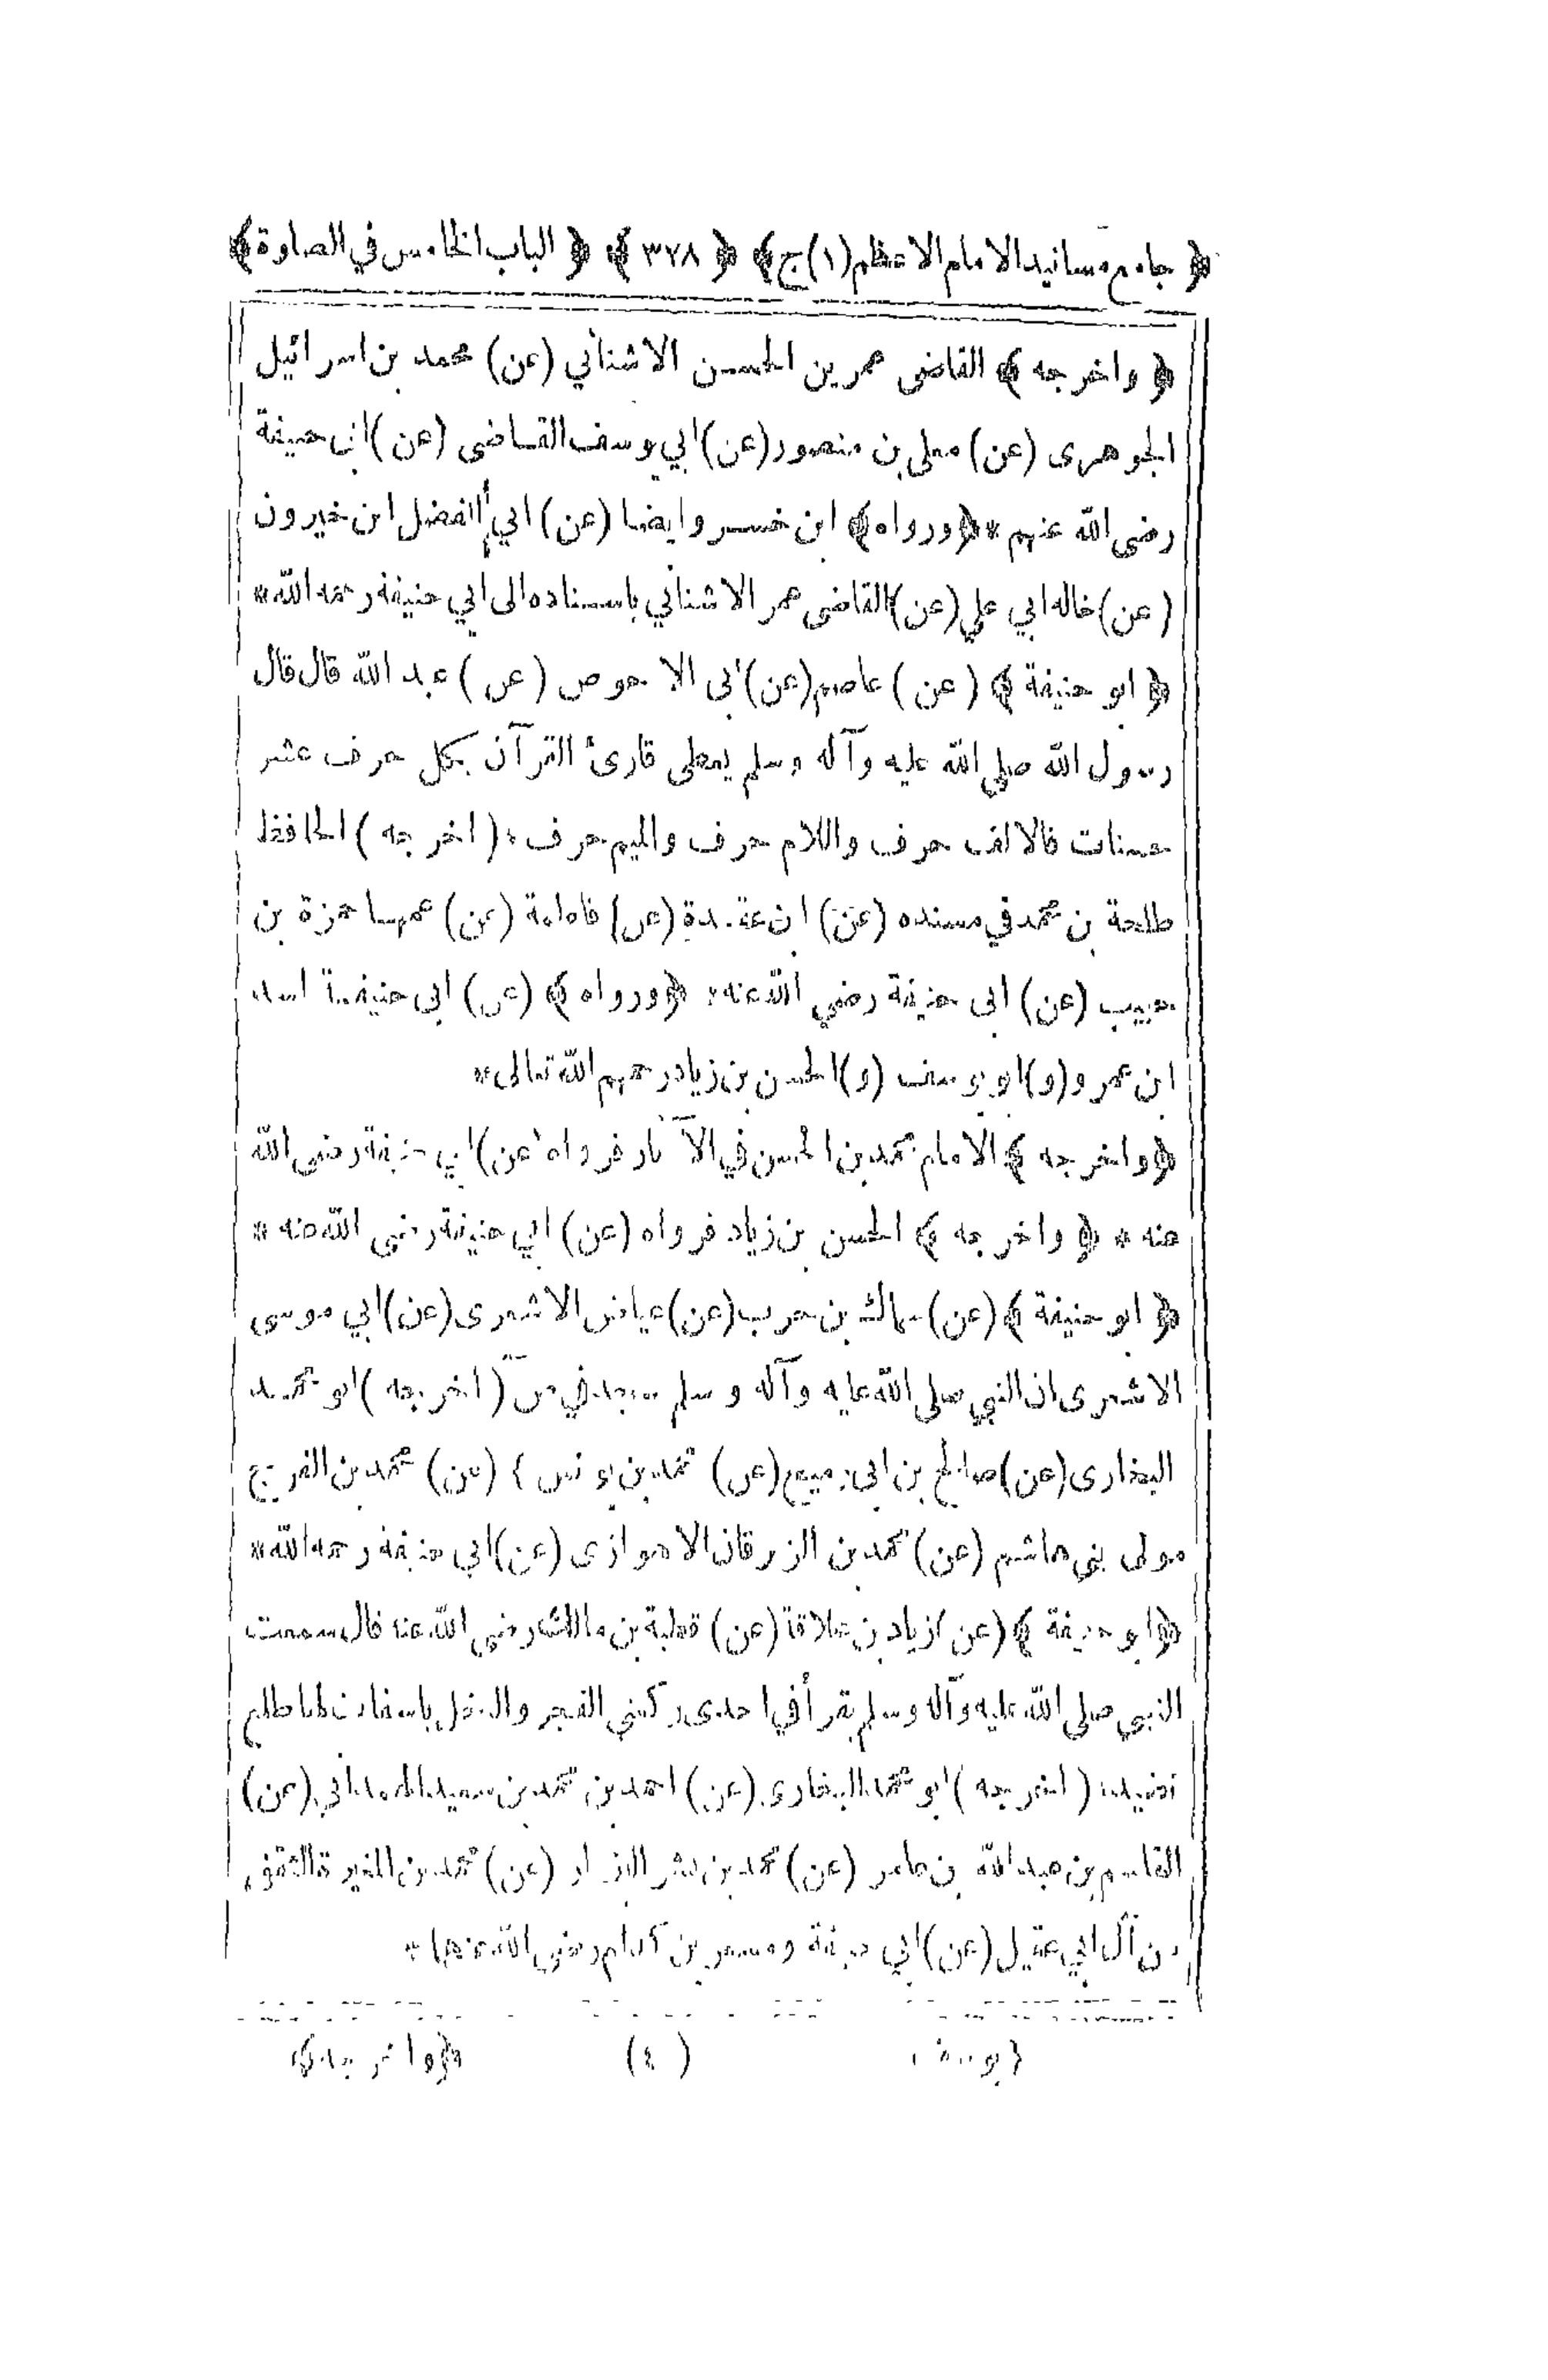 ﴿ جامع مسانيد الامام الاعظم (١) ج ﴾ ﴿ ٣٢٨ ﴾ ﴿ الباب الخامس في الصلوة ﴾
﴿ واخرجه ﴾ القاضى عمر بن الحسن الاشناني (عن) محمد بن اسرائيل
الجوهرى (عن) معلى بن منصور (عن) ابي يوسف القاضى (عن) ابي حنيفة
رضى الله عنهم * ﴿ ورواه ﴾ ابن خسرو ايضا (عن) ابي الفضل ابن خيرون
(عن) خاله ابي علي (عن) القاضى عمر الاشناني باسناده الى ابي حنيفة رحمه الله *
﴿ ابو حنيفة ﴾ (عن) عاصم (عن) ابى الاحوص (عن) عبد الله قال قال
رسول الله صلى الله عليه وآله وسلم يعطى قارئ القرآن بكل حرف عشر
حسنات فالالف حرف واللام حرف والميم حرف * (اخرجه) الحافظ
طلحة بن محمد في مسنده (عن) ابن عقدة (عن) فاطمة (عن) عمها حمزة بن
حبيب (عن) ابى حنيفة رضي الله عنه * ﴿ ورواه ﴾ (عن) ابى حنيفة اسد
ابن عمرو (و) ابو يوسف (و) الحسن بن زياد رحمهم الله تعالى *
﴿ واخرجه ﴾ الامام محمد بن الحسن في الآثار فرواه (عن) ابي حنيفة رضى الله
عنه * ﴿ واخرجه ﴾ الحسن بن زياد فرواه (عن) ابي حنيفة رضى الله عنه *
﴿ ابو حنيفة ﴾ (عن) سماك بن حرب (عن) عياض الاشعرى (عن) ابي موسى
الاشعرى ان النبي صلى الله عليه وآله وسلم سجد في ص (اخرجه) ابو محمد
البخارى (عن) صالح بن ابى رميح (عن) محمد بن يونس (عن) محمد بن الفرج
مولى بنى هاشم (عن) محمد بن الزبرقان الاهوازى (عن) ابي حنيفة رحمه الله *
﴿ ابو حنيفة ﴾ (عن) زياد بن علاقة (عن) قطبة بن مالك رضى الله عنه قال سمعت
النبي صلى الله عليه وآله وسلم يقرأ في احدى ركعتي الفجر والنخل باسقات لها طلع
نضيد * (اخرجه) ابو محمد البخارى (عن) احمد بن محمد بن سعيد الهمداني (عن)
القاسم بن عبد الله بن عامر (عن) محمد بن بشر البزار (عن) محمد بن المغيرة الثقفى
من آل ابي عقيل (عن) ابي حنيفة ومسعر بن كدام رضى الله عنهما *
(٤) ﴿ واخرجه ﴾